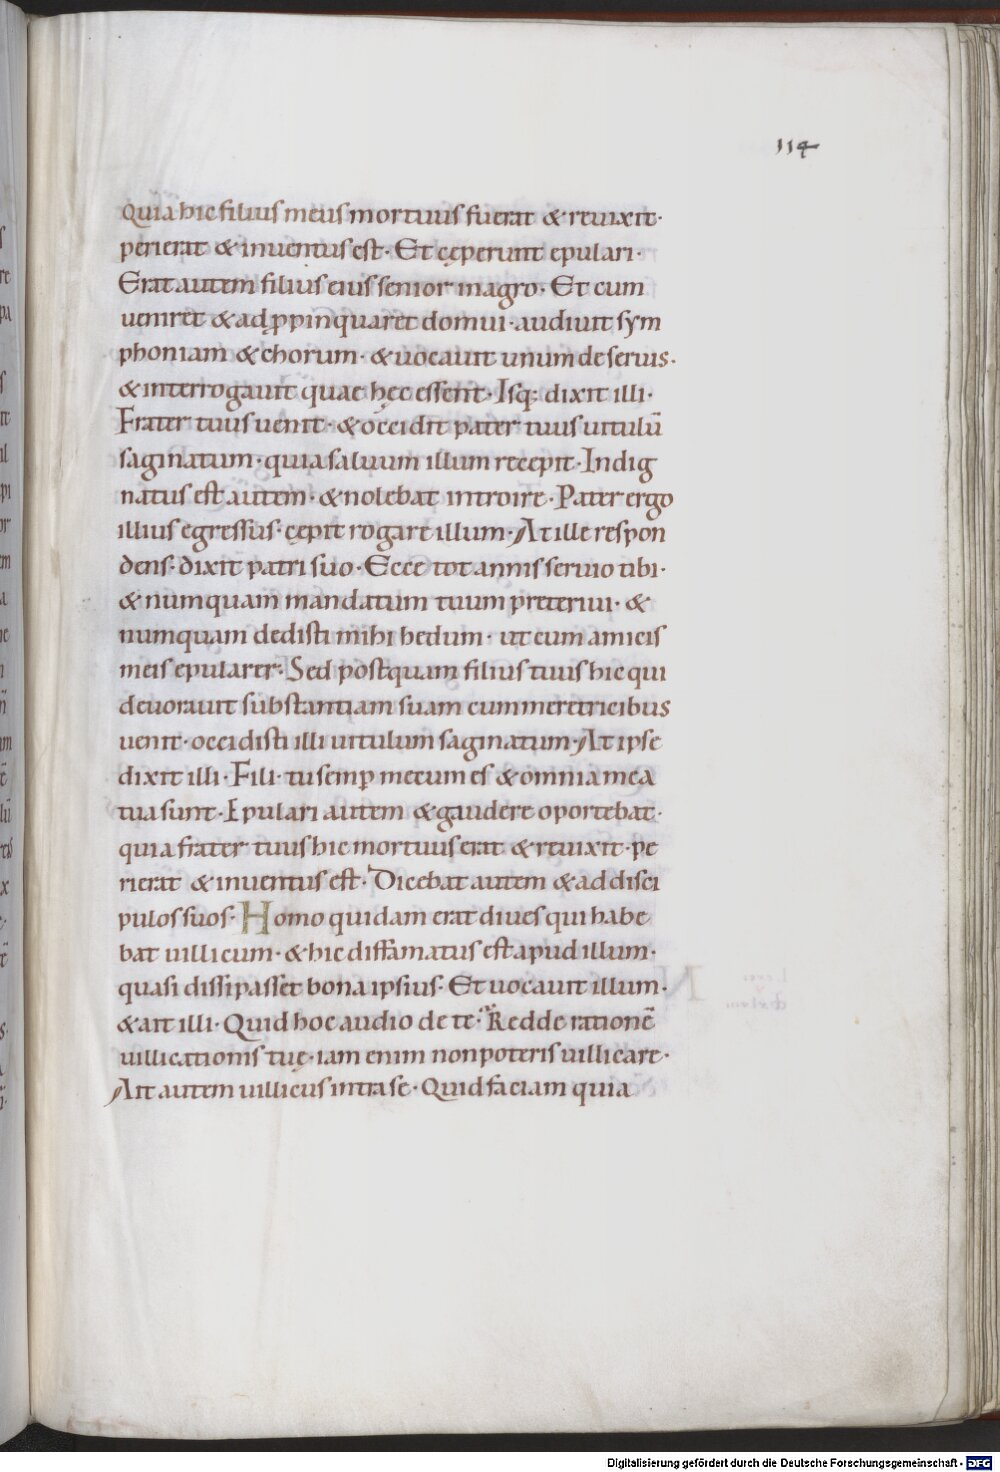 114
quia hic filius meus mortuus fuerat & reuixit·
perierat & inuentus est· Et cęperunt epulari·
Erat autem filius eius senior in agro· Et cum
ueniret & adp̱pinquaret domui· audiuit sym
phoniam & chorum· & uocauit unum de seruis·
& interrogauit quae hęc essent· Isq; dixit illi·
Frater tuus uenit· & occidit pater tuus uitulū
saginatum· quia saluum illum recepit· Indig
natus est autem· & nolebat introire· Pater ergo
illius egressus· cępit rogare illum· At ille respon
dens· dixit patri suo· Ecce tot annis seruio tibi·
& numquam mandatum tuum preteriui· &
numquam dedisti mihi hedum· ut cum amicis
meis epularer· Sed postquam filius tuus hic qui
deuorauit substantiam suam cum meretricibus
uenit· occidisti illi uitulum saginatum· At ipse
dixit illi· Fili· tu semp̱ mecum es & omnia mea
tua sunt· Epulari autem & gaudere oportebat·
quia frater tuus hic mortuus erat & reuixit· pe
rierat & inuentus est· Dicebat autem & ad disci
pulos suos· Homo quidam erat diues qui habe
bat uillicum· & hic diffamatus est apud illum·
quasi dissipasset bona ipsius· Et uocauit illum·
& ait illi· Quid hoc audio de te· Redde rationē
uillicationis tuę· iam enim non poteris uillicare·
Ait autem uillicus intra se· Quid faciam quia
Digitalisierung gefördert durch die Deutsche Forschungsgemeinschaft - DFG